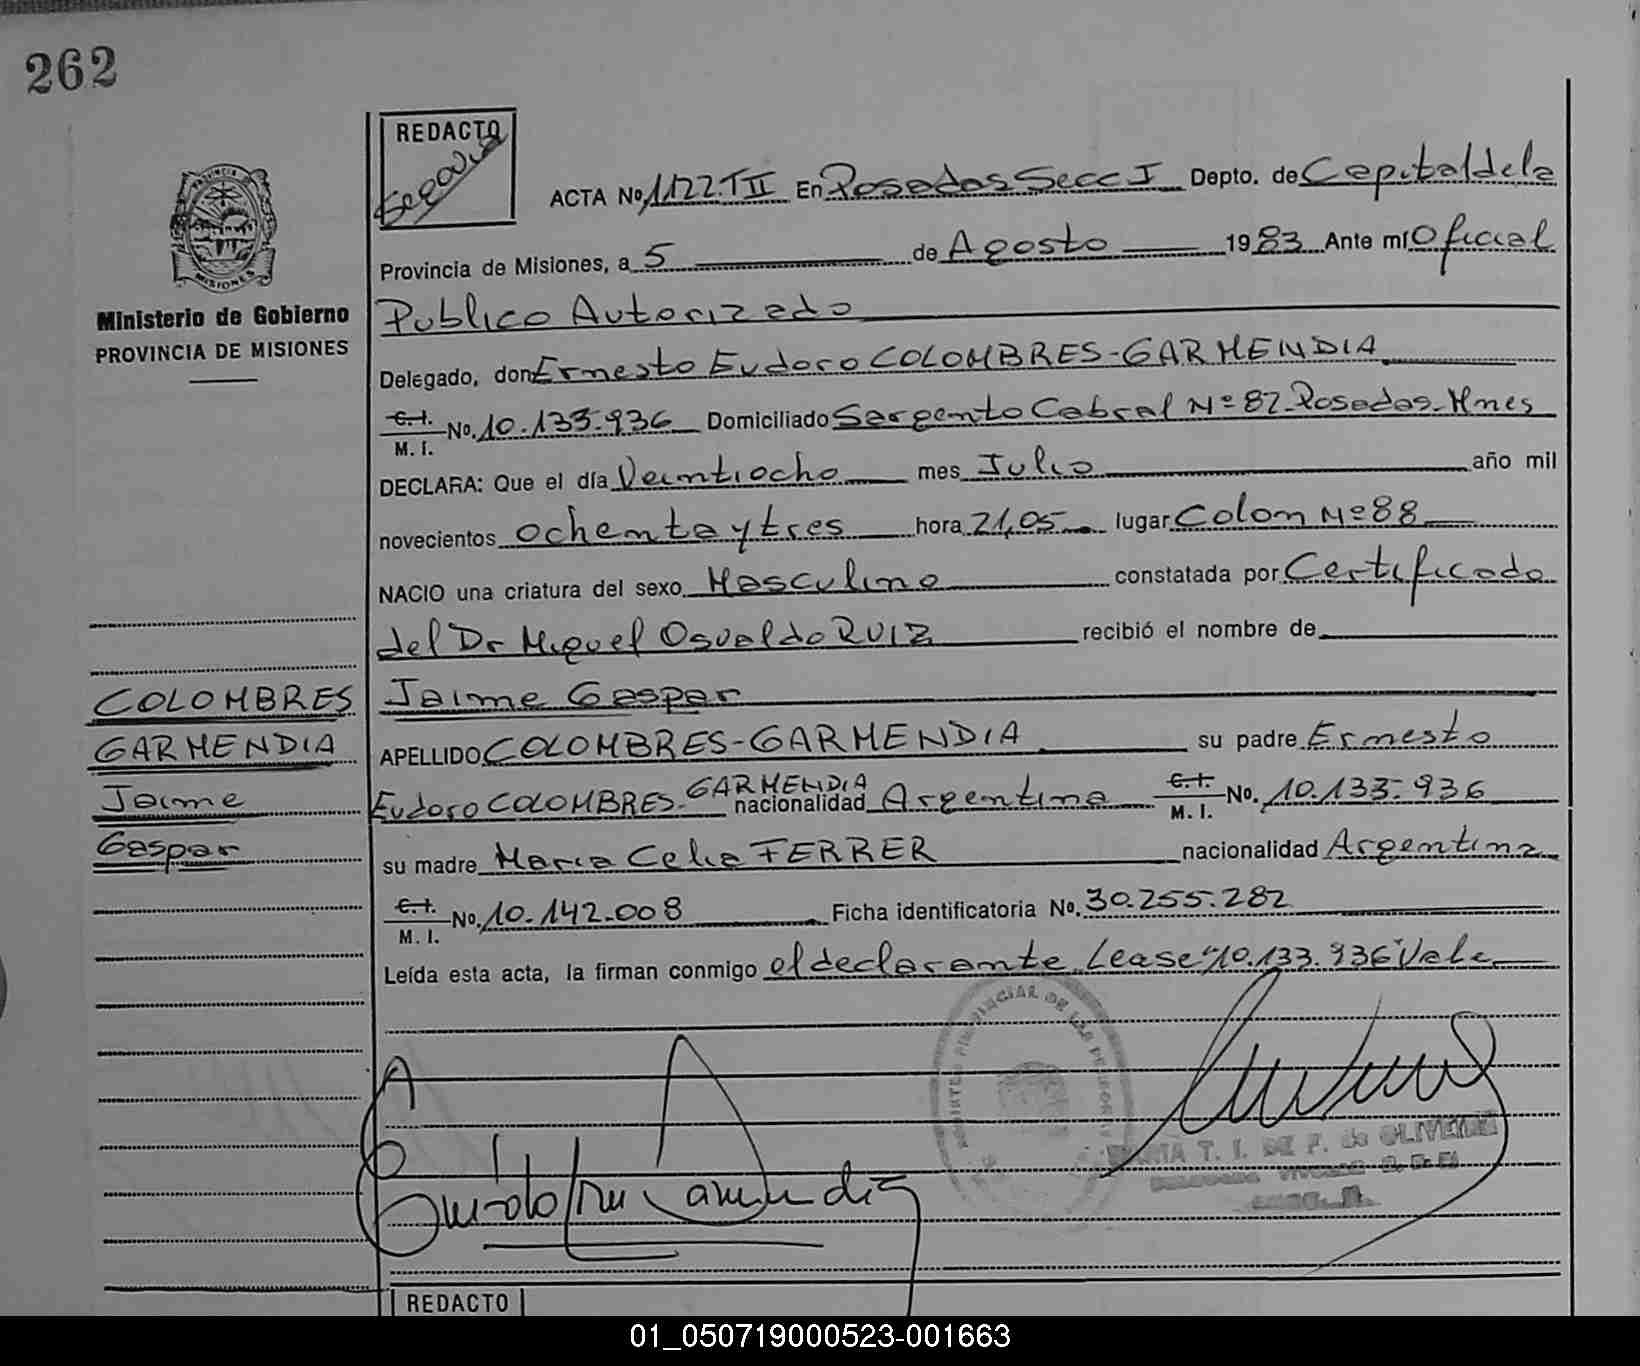 262
REDACTO
ACTA No 1122.TII En Posadas Secc I Depto. de Capital de la
Provincia de Misiones, a 5 de Agosto 1983 Ante mí Oficial
Publico Autorizado
Ministerio de Gobierno
PROVINCIA DE MISIONES
Delegado, don Ernesto Eudoro COLOMBRES-GARMENDIA
C.I. M. I. No. 10.133.936 Domiciliado Sargento Cabral Nº 82 Posadas-Mnes
DECLARA: Que el día Veintiocho mes Julio año mil
novecientos ochenta y tres hora 21,05 lugar Colon Nº 88
NACIO una criatura del sexo Masculino constatada por Certificado
del Dr Miguel Osvaldo RUIZ recibió el nombre de
Jaime Gaspar
COLOMBRES
GARMENDIA
Jaime
Gaspar
APELLIDO COLOMBRES-GARMENDIA su padre Ernesto
Eudoro COLOMBRES-GARMENDIA nacionalidad Argentina C.I. M. I. No. 10.133.936
su madre Maria Celia FERRER nacionalidad Argentina
C.I. M. I. No. 10.142.008 Ficha identificatoria No. 30.255.282
Leída esta acta, la firman conmigo el declarante. Lease "10.133.936" Vale
T. I. DE P. de OLIVEIRA
REDACTO
01_050719000523-001663